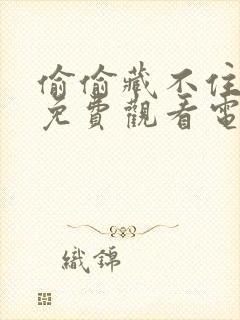 偷偷藏不住
免費觀看電
織錦